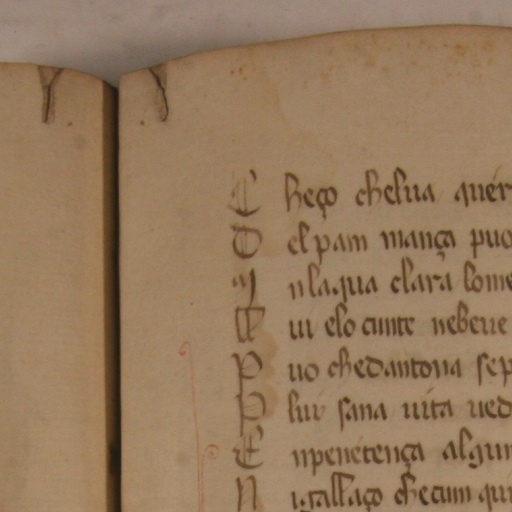 C heço chelua quer
D el pam mança puo
I nlaqua clara lome
A ui elo cunte nebeue
P uo chedantona sep
P lui sana uita ued
E npenetença algun
N igallaço checum qui